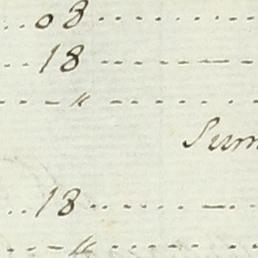 ..08.........
...18.........—...
....."............
Sum
...18.........—...
....."............